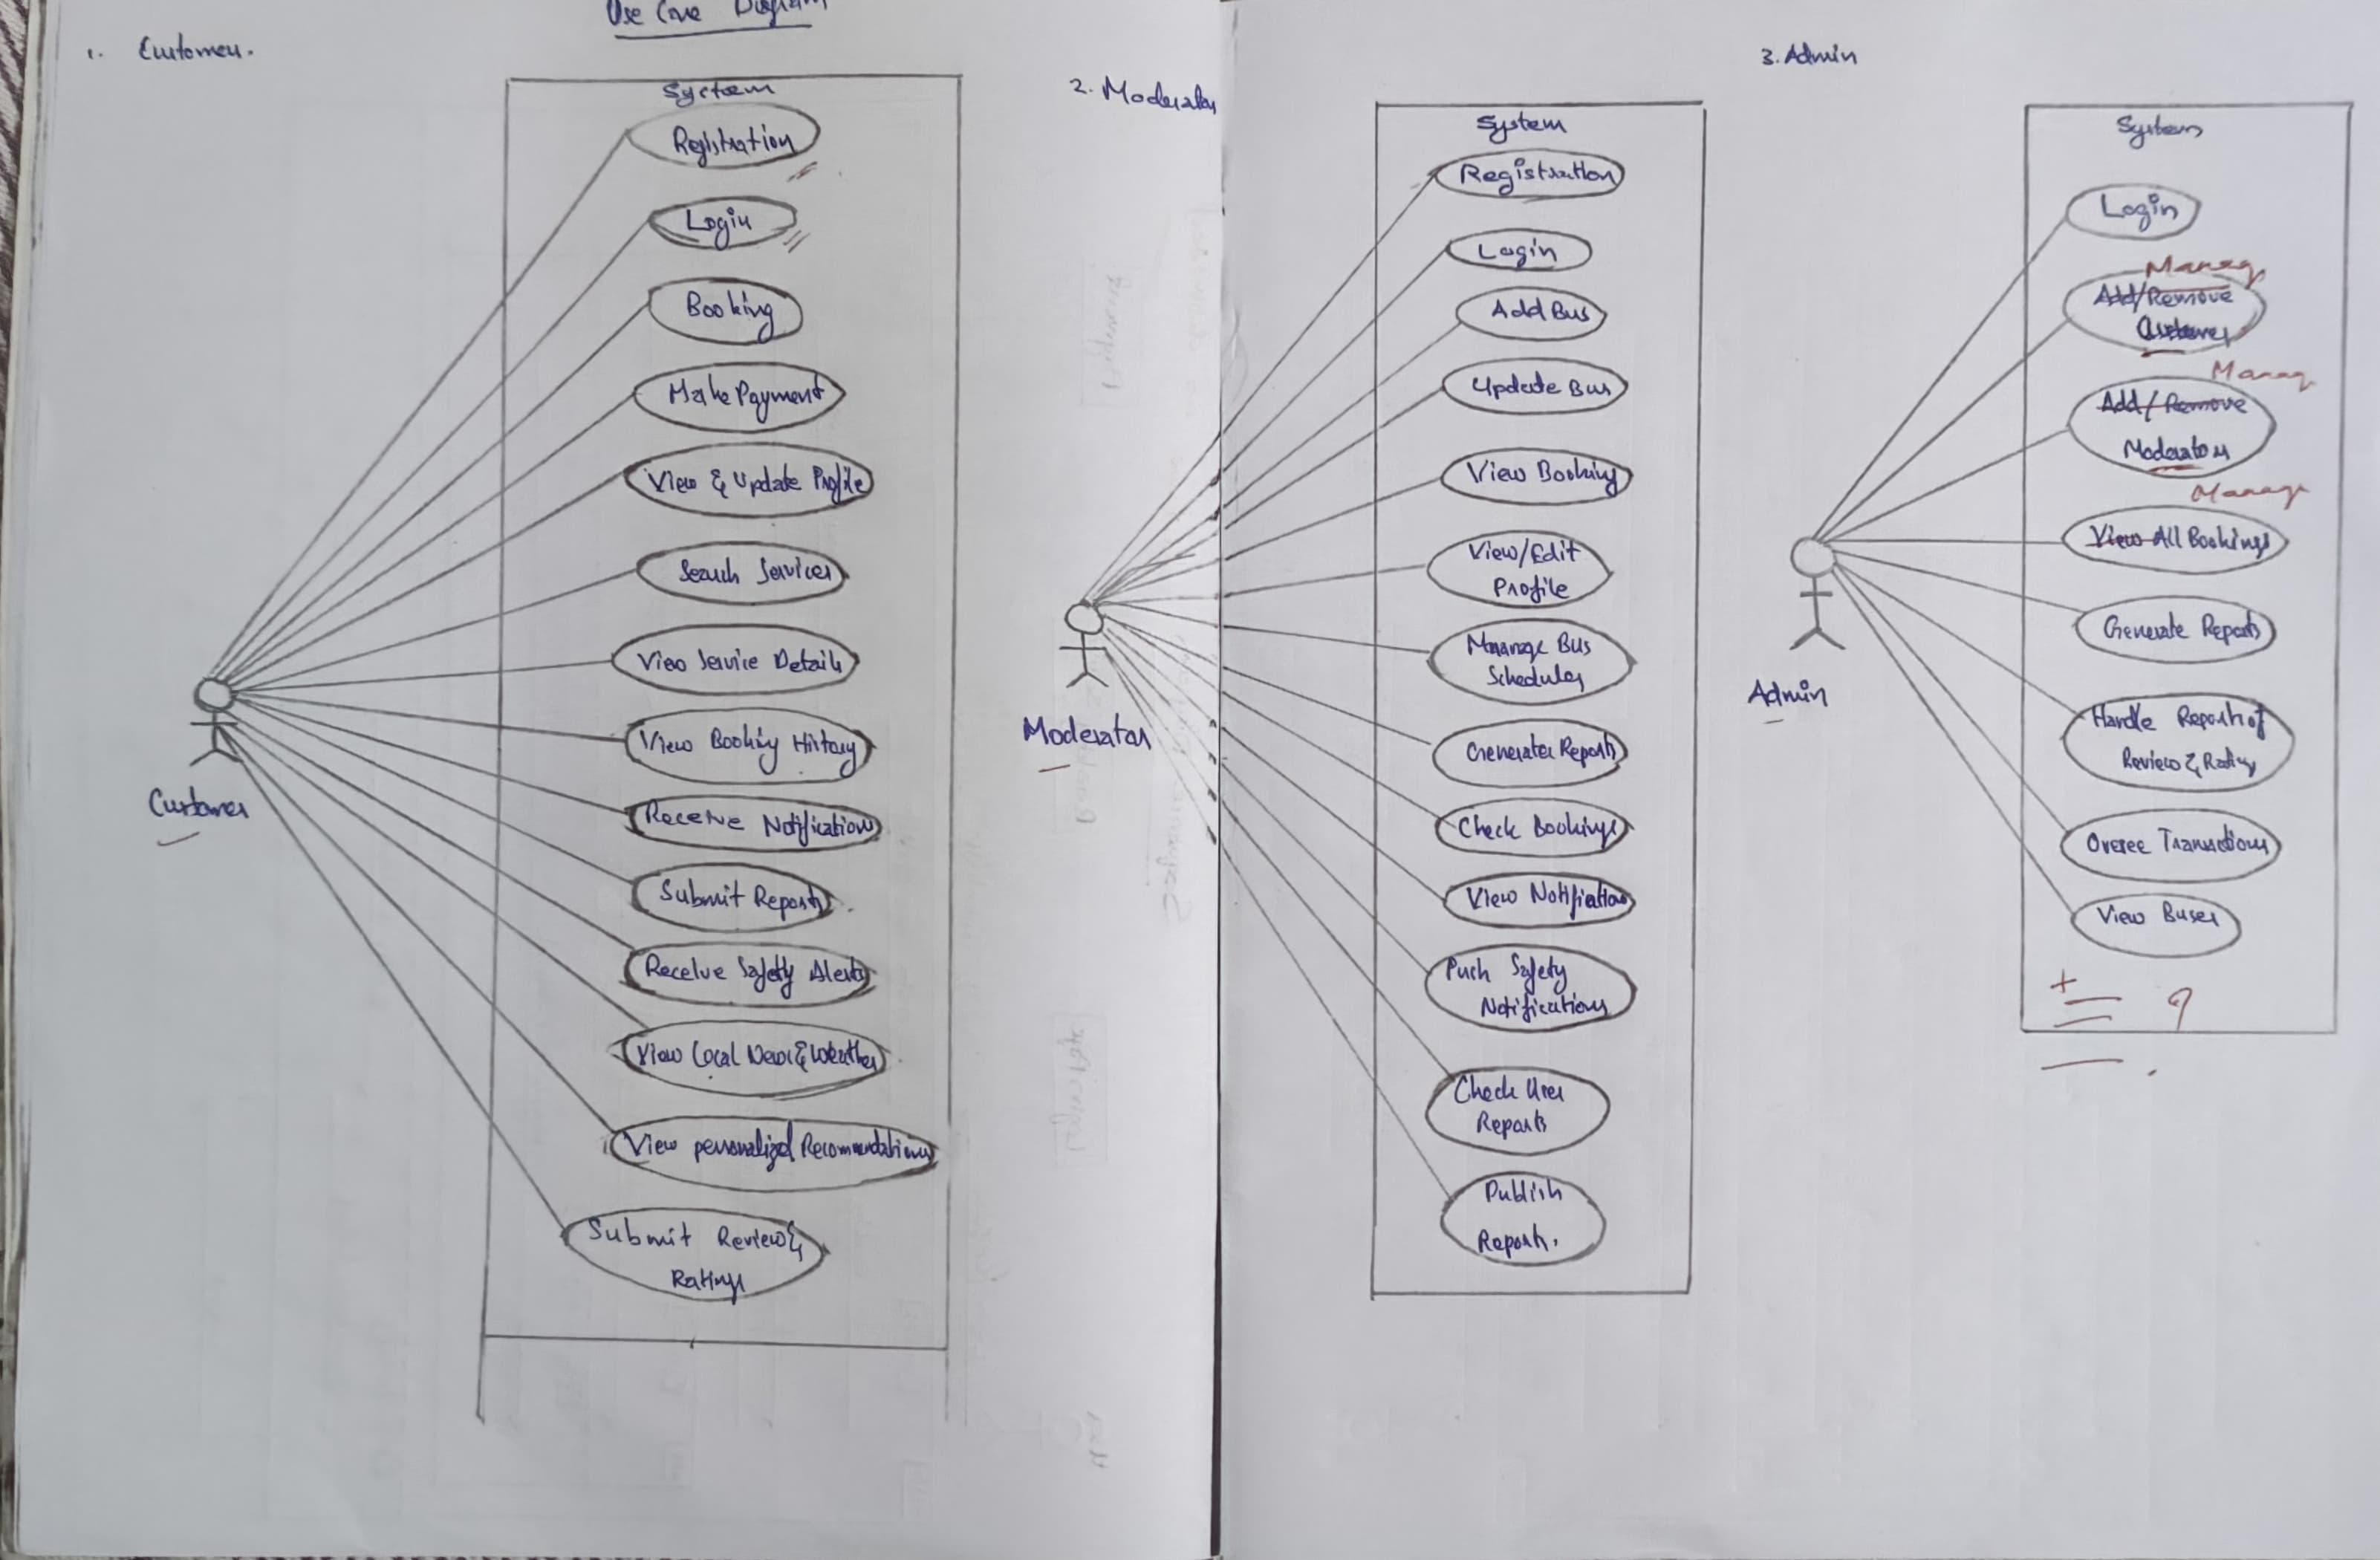 Use Case Diagram
1. Customer.
System
Registration
Login
Booking
Make Payment
View & Update Profile
Search Services
View Service Details
View Booking History
Receive Notifications
Submit Reports
Receive Safety Alerts
View Local News & Weather
View personalized Recommendations
Submit Review &
Ratings
Customer
2. Moderator
System
Registration
Login
Add Bus
Update Bus
View Booking
View/Edit
Profile
Manage Bus
Schedules
Generate Reports
Check Bookings
View Notifications
Push Safety
Notifications
Check User
Reports
Publish
Reports.
Moderator
3. Admin
System
Login
Manag
Add/Remove
Customer
Manag
Add/Remove
Moderators
Manag
View All Bookings
Generate Reports
Handle Reports of
Review & Rating
Oversee Transactions
View Buses
Admin
+ ?